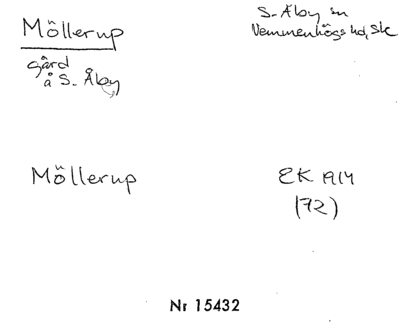 Möllerup
S. Åby sn
Vemmenhögs hd, Sk
gård
å S. Åby
Möllerup
EK 1914
(72)
Nr 15432